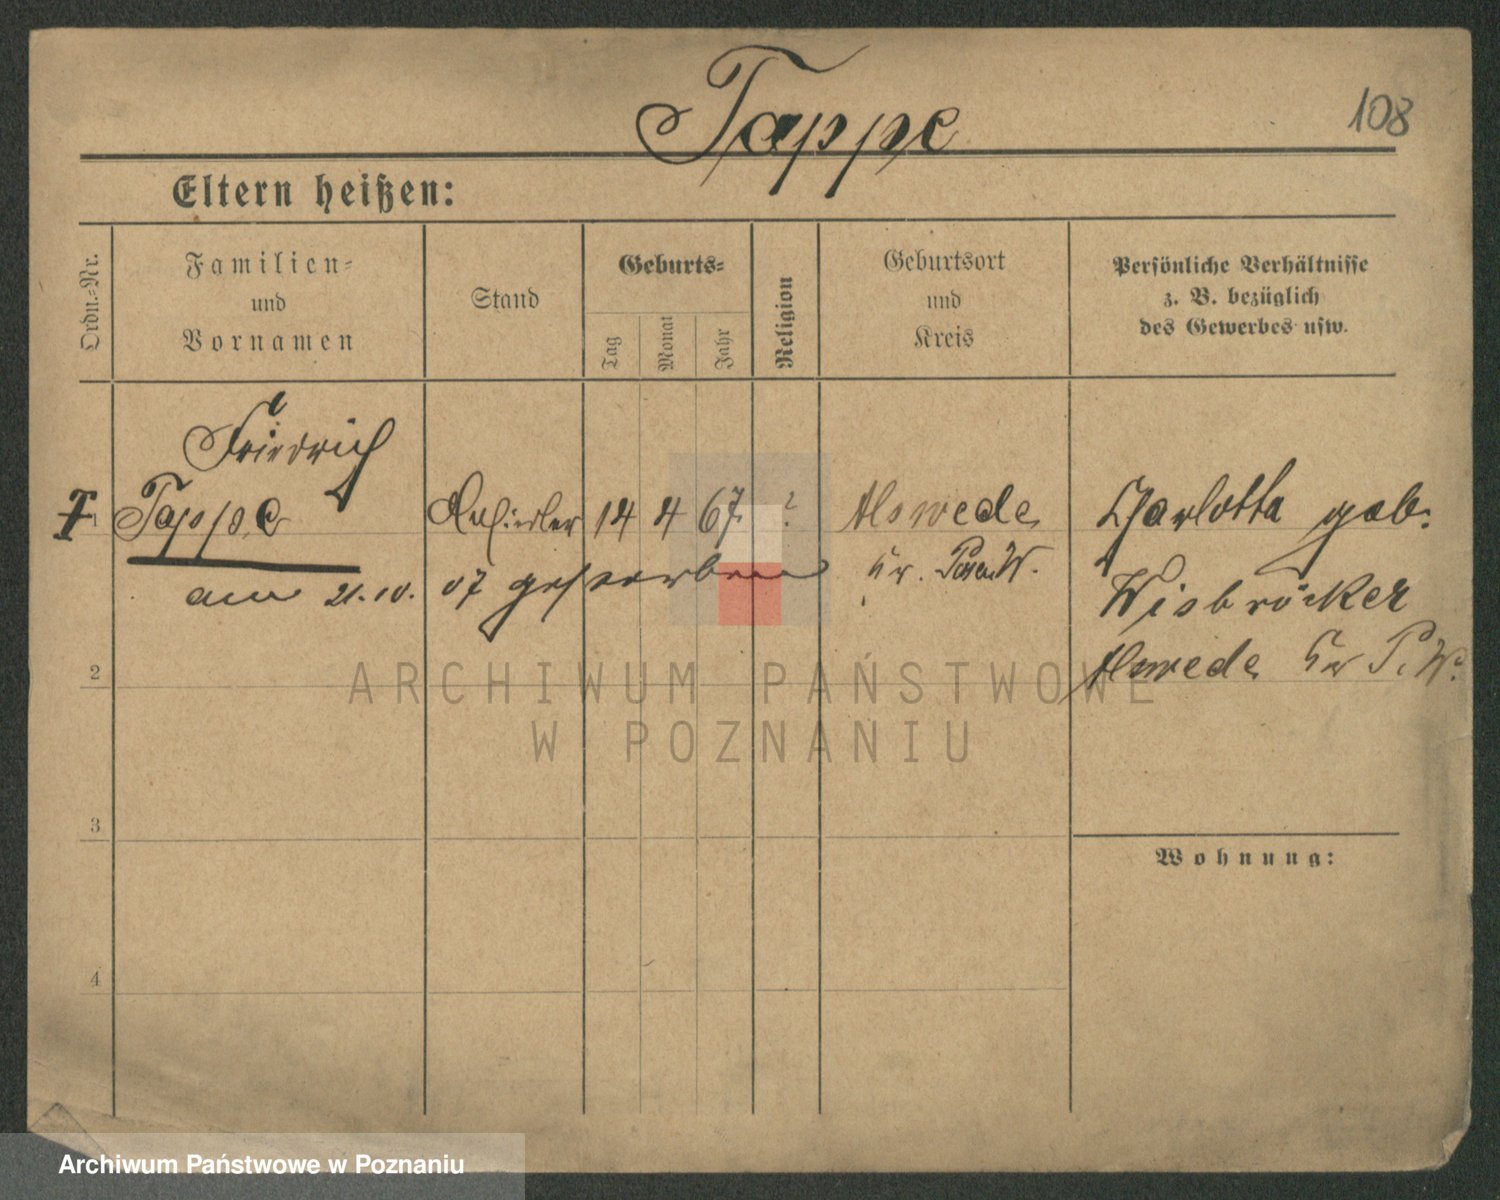 Tappe
108
Eltern heißen:
Ordn.-Nr.
Familien-
und
Vornamen
Stand
Geburts-
Tag
Monat
Jahr
Religion
Geburtsort
und
Kreis
Persönliche Verhältnisse
z. B. bezüglich
des Gewerbes usw.
Friedrich
1 Tappe Ansiedler 14 4 67 ? Alswede
Kr.
am 21.10. 07 gestorben
Charlotta geb.
Wisbröcker
Alswede Kr P. W.
2
3
4
Wohnung:
ARCHIWUM PAŃSTWOWE
W POZNANIU
Archiwum Państwowe w Poznaniu